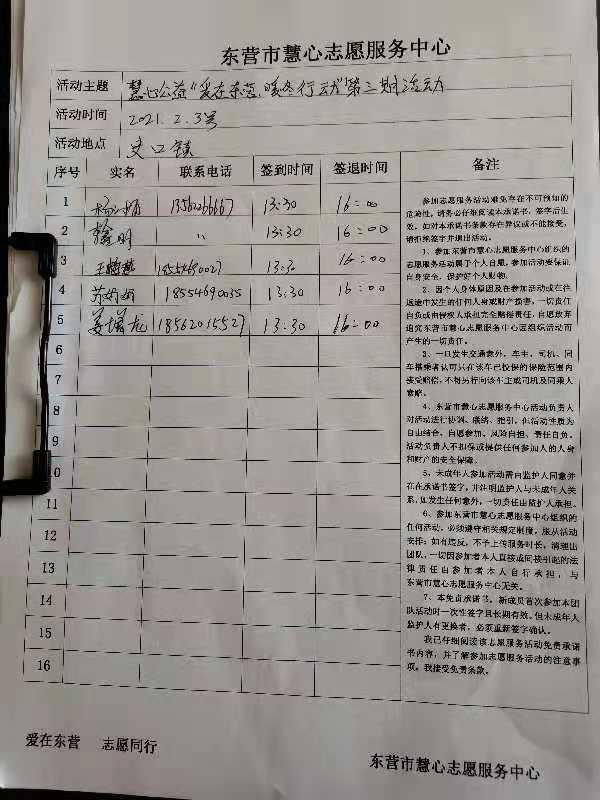 东营市慧心志愿服务中心
活动主题 慧心公益“爱在东营,暖冬行动”第三期活动
活动时间 2021.2.3号
活动地点 史口镇
序号 实名 联系电话 签到时间 签退时间 备注
1 13562266667 13:30 16:00
2 明 〃 13:30 16:00
3 王 18554690027 13:30 16:00
4 苏娟娟 18554690035 13:30 16:00
5 姜增龙 18562015527 13:30 16:00
6
7
8
9
10
11
12
13
14
15
16
参加志愿服务活动难免存在不可预知的
危险性,请务必仔细阅读本承诺书,签字后生
效,如对本承诺书条款存在异议或不能接受,
请拒绝签字并退出活动。
1、参加东营市慧心志愿服务中心组织的
志愿服务活动属于个人自愿,参加活动要保证
自身安全,保护好个人财物。
2、因个人身体原因及在参加活动或在往
返途中发生的任何人身或财产损害,一切责任
自负或由侵权人承担完全赔偿责任,自愿放弃
追究东营市慧心志愿服务中心因组织活动而
产生的一切责任。
3、一旦发生交通意外,车主、司机、同
车搭乘者认可只在该车已投保的保险范围内
接受赔偿,不得另行向该车主或司机及同乘人
索赔。
4、东营市慧心志愿服务中心活动负责人
对活动进行协调、联络、指引,但活动性质为
自由结合、自愿参加、风险自担、责任自负。
活动负责人不担保或提供任何参加人的人身
和财产的安全保障。
5、未成年人参加活动需由监护人同意并
在在承诺书签字,并注明监护人与未成年人关
系,如发生任何意外,一切责任由监护人承担。
6、参加东营市慧心志愿服务中心组织的
任何活动,必须遵守相关规定制度,服从活动
安排;如有违反,不予上传服务时长,清理出
团队,一切因参加者本人直接或间接引起的法
律责任由参加者本人自行承担,与
东营市慧心志愿服务中心无关。
7、本免责承诺书,新成员首次参加本团
队活动时一次性签字且长期有效。但未成年人
监护人有更换者,必须重新签字确认。
我已仔细阅读该志愿服务活动免责承诺
书内容,并了解参加志愿服务活动的注意事
项。我接受免责条款。
爱在东营 志愿同行
东营市慧心志愿服务中心